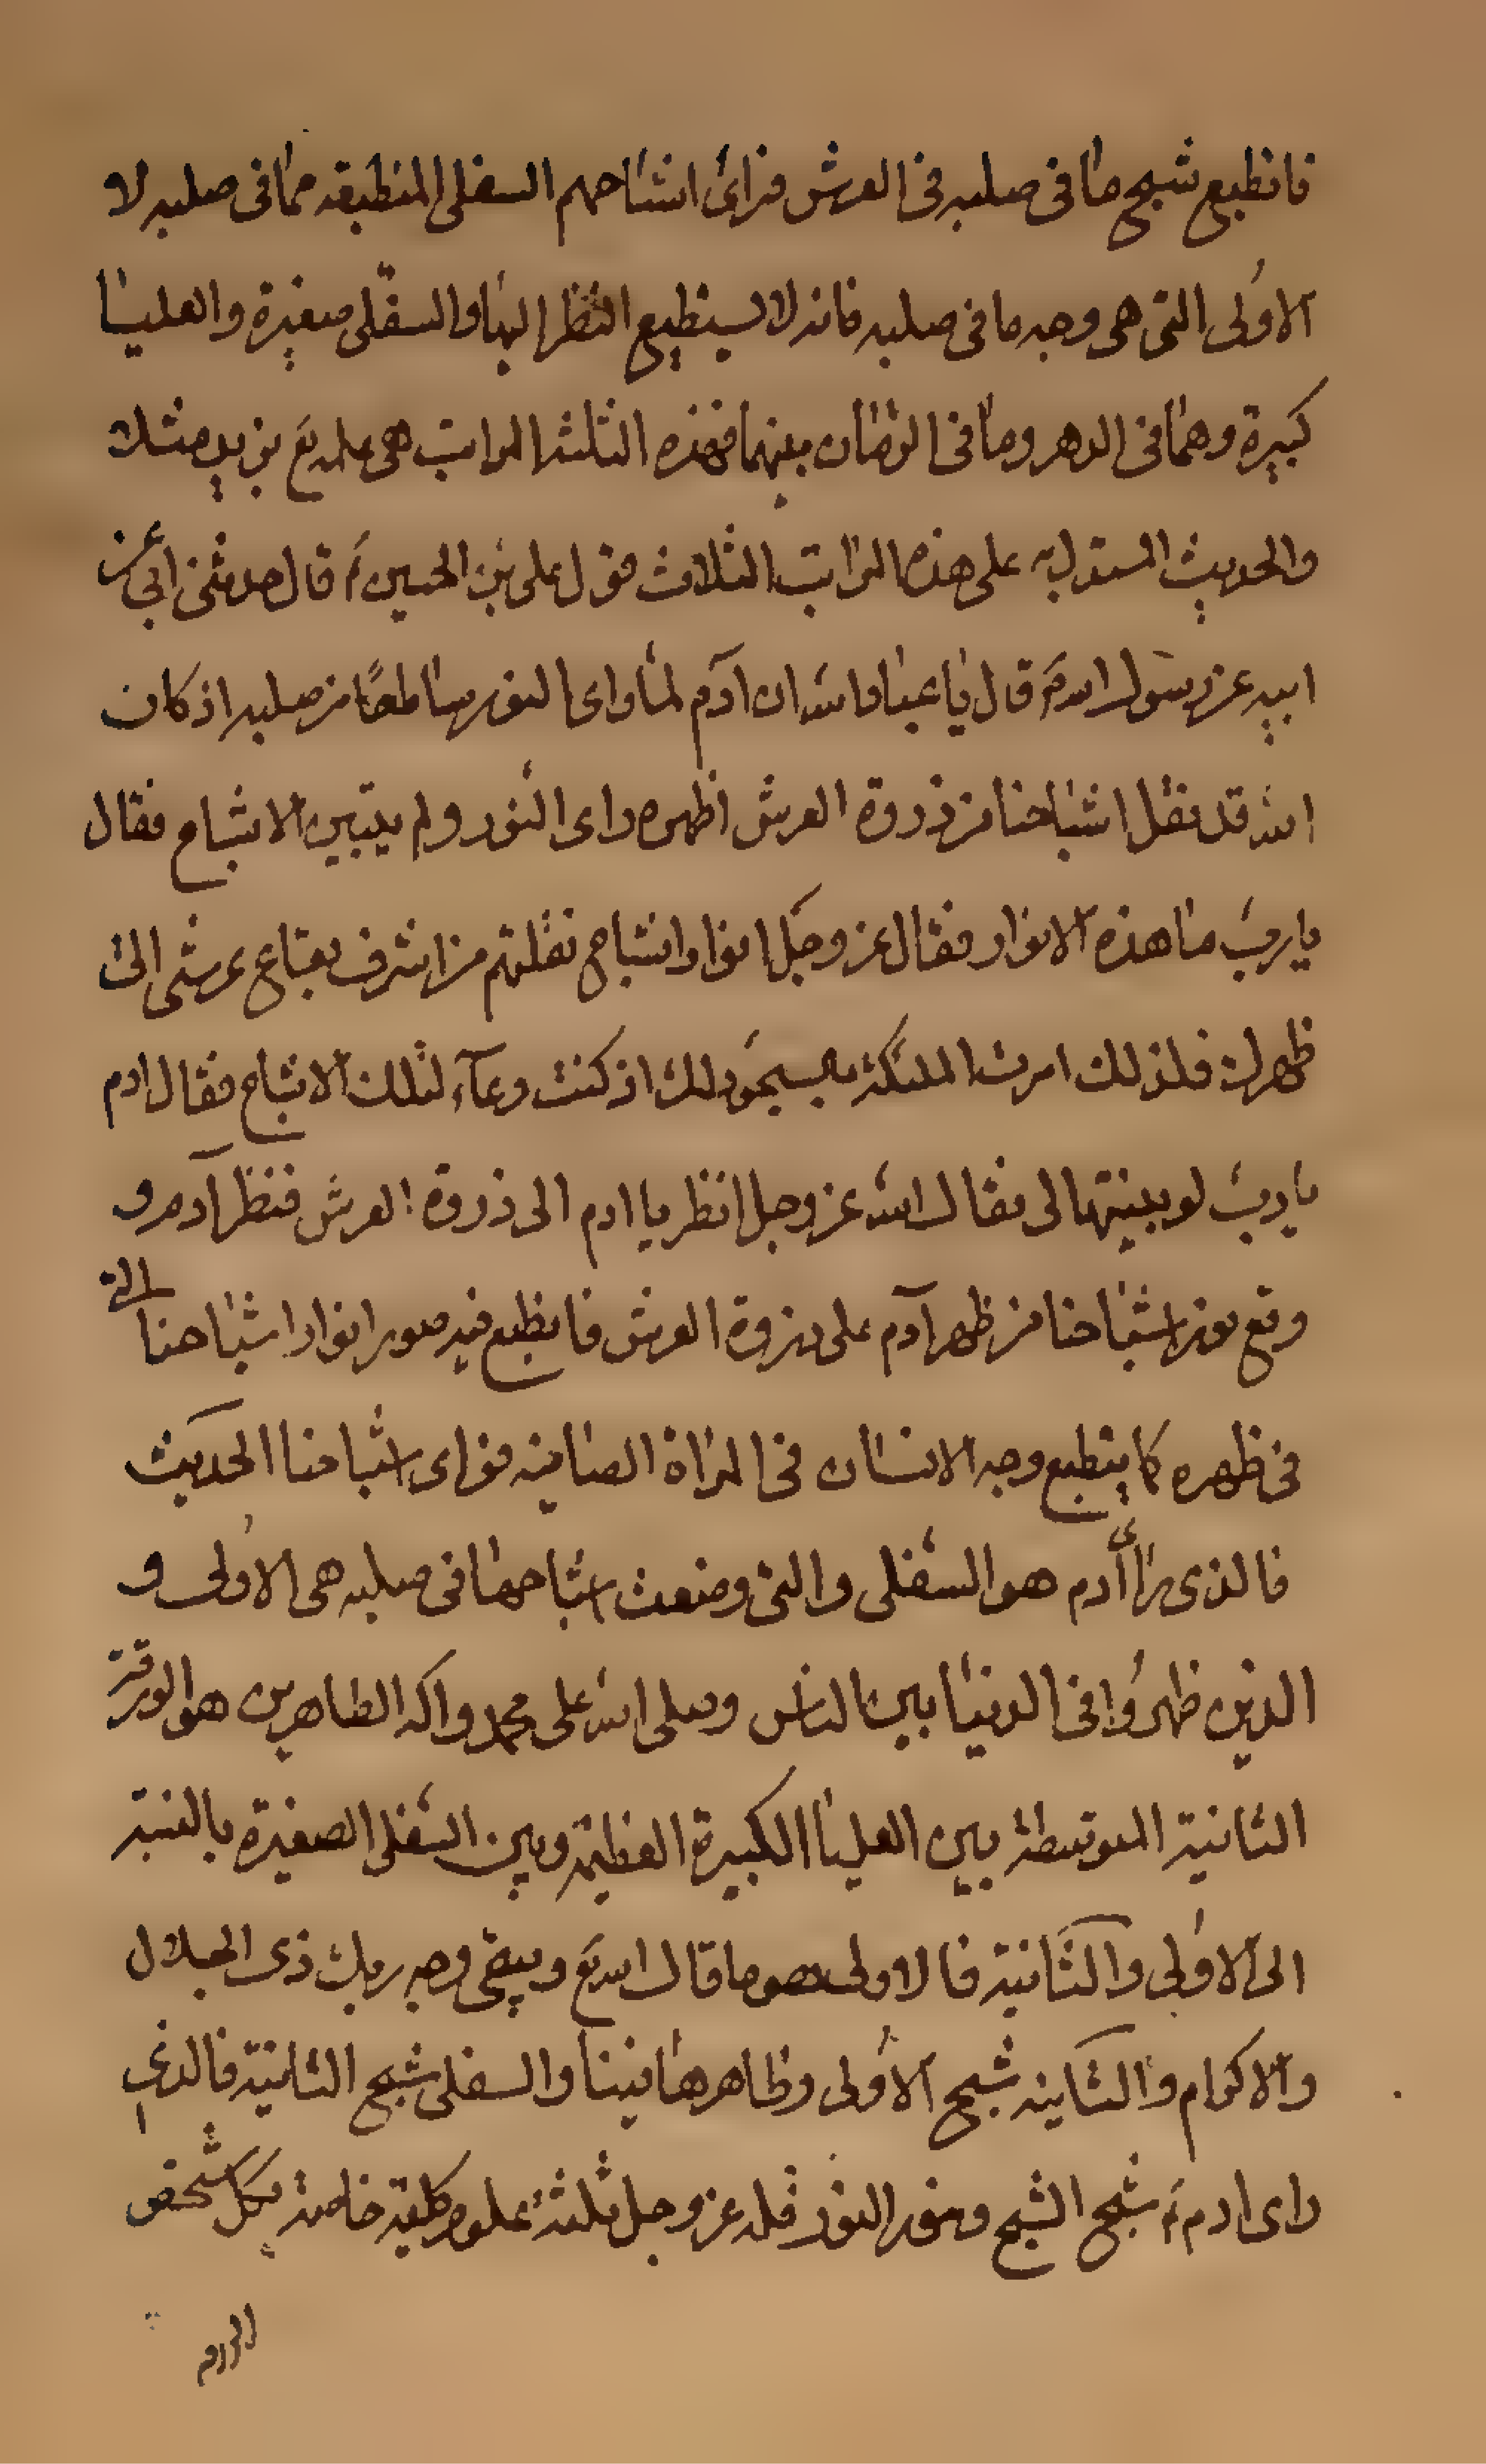 فانطبع شبح ما فى صلبه فى العرش فراى اشباحهم السفلى المنطبقة مما فى صلبه لا
الاولى التى هى وجه ما فى صلبه فانه لا يستطيع النظر اليها والسفلى صغيرة والعليا
كبيرة وهما فى الدهر وما فى الزمان بينهما فهذه الثلثة المراتب هى علمه تع بزيد مثلا
والحديث المستدل به على هذه المراتب الثلاث قول على بن الحسين ع قال حدثنى ابى عن
ابيه عن رسول الله ص قال يا عباد الله ان آدم لما راى النور ساطعًا من صلبه اذ كان
الله قد نقل اشباحنا من ذروة العرش الى ظهره راى النور ولم يتبين الاشباح فقال
يا رب ما هذه الانوار فقال عز وجل انوار اشباح نقلتهم من اشرف بقاع عرشى الى
ظهرك فلذلك امرت الملئكة بالسجود لك اذ كنت وعآء لتلك الاشباح فقال ادم
يا رب لو بينتها لى فقال الله عز وجل انظر يا ادم الى ذروة العرش فنظر آدم و
وقع نور اشباحنا من ظهر آدم على ذروة العرش فانطبع فيه صور انوار اشباحنا التى
فى ظهره كما ينطبع وجه الانسان فى المرآة الصافية فراى اشباحنا الحديث
فالذى رأى أدم هو السفلى والتى وضعت اشباحها فى صلبه هى الاولى و
الذين ظهروا فى الدنيا بين الناس وصلى الله على محمد وآله الطاهرين هو الورقة
الثانية المتوسطة بين العليا الكبيرة العظيمة وبين السفلى الصغيرة بالنسبة
الى الاولى والثانية فالاولى هو ما قال الله تع ويبقى وجه ربك ذى الجلال
والاكرام والثانية شبح الاولى وظاهرها فينا والسفلى شبح الثانية فالذى
راى ادم ع شبح الشبح ونور النور فله عز وجل ثلثة علوم كلية خاصة بكل شخص